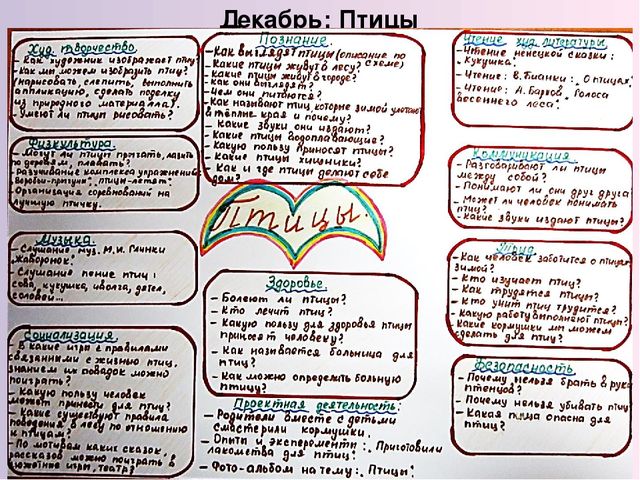 Декабрь: Птицы
Худ. творчество.
- Как художник изображает птиц?
- Как мы можем изобразить птиц?
(нарисовать, слепить, выполнить
аппликацию, сделать поделки
из природного материала).
- Умеют ли птицы рисовать?
Физкультура.
- Могут ли птицы прыгать, лазить
по деревьям, плавать?
- Разучивание комплекса упражнений:
"Воробьи-прыгуны", "птицы-летят".
- Организация соревнований на
лучшую птичку.
Музыка.
- Слушание муз. М.И. Глинки
"Жаворонок".
- Слушание пение птиц:
сова, кукушка, иволга, дятел,
соловей...
Социализация.
- В какие игры с правилами
связанными с жизнью птиц,
знанием их повадок можно
поиграть?
- Какую пользу человек
может принести для птиц?
- Какие существуют правила
поведения в лесу по отношению
к птицам?
- По мотивам каких сказок,
рассказов можно поиграть в
сюжетные игры, театр?
Познание.
- Как выглядят птицы (описание по
схеме)
- Какие птицы живут в лесу?
- Какие птицы живут в городе?
- Как они выглядят?
- Чем они питаются?
- Как называют птиц, которые зимой улетают
в тёплые края и почему?
- Какие звуки они издают?
- Какие птицы водоплавающие?
- Какую пользу приносят птицы?
- Какие птицы хищники?
- Как и где птицы делают себе
дом?
Птицы.
Здоровье.
- Болеют ли птицы?
- Кто лечит птиц?
- Какую пользу для здоровья птицы
приносят человеку?
- Как называется больница для
птиц?
- Как можно определить больную
птицу?
Проектная деятельность:
- Родители вместе с детьми
смастерили кормушки.
- Опыты и эксперементы: "Приготовили
лакомства для птиц".
- Фото-альбом на тему: "Птицы".
Чтение худ. литературы
- Чтение ненецкой сказки:
"Кукушка".
- Чтение: В. Бианки: "О птицах".
- Чтение: А. Барков "Голоса
весеннего леса".
Коммуникация.
- Разговаривают ли птицы
между собой?
- Понимают ли они друг друга?
- Может ли человек понимать
птиц?
- Какие звуки издают птицы?
Труд.
- Как человек заботится о птицах
зимой?
- Кто изучает птиц?
- Как трудятся птицы?
- Кто учит птиц трудится?
- Какую работу выполняют птицы?
- Какие кормушки мы можем
сделать для птиц?
Безопасность
- Почему нельзя брать в руки
птенцов?
- Почему нельзя убивать птиц?
- Какая птица опасна для
птиц?